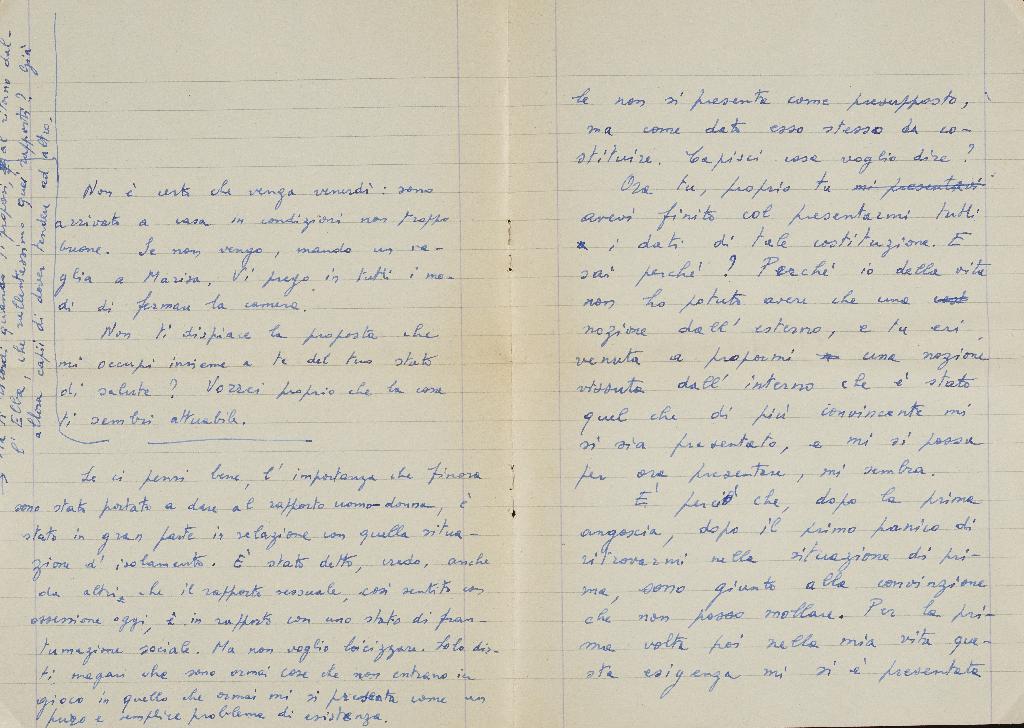 Non è certo che venga venerdì: sono
arrivato a casa in condizioni non troppo
buone. Se non vengo, mando un va-
glia a Marisa. Vi prego in tutti i mo-
di di fermare la camera.
Non ti dispiace la proposta che
mi occupi insieme a te del tuo stato
di salute? Vorrei proprio che la cosa
ti sembri attuabile.
Se ci pensi bene, l'importanza che finora
sono stato portato a dare al rapporto uomo-donna, è
stato in gran parte in relazione con quella situa-
zione d'isolamento. È stato detto, credo, anche
da altri, che il rapporto sessuale, così sentito con
ossessione oggi, è in rapporto con uno stato di fran-
tumazione sociale. Ma non voglio laicizzare. Solo dir-
ti, magari che sono ormai cose che non entrano in
gioco in quello che ormai mi si presenta come un
puro e semplice problema di esistenza.
ti ricordi quando ti proposi, al ritorno dal-
l'Elba, che rallentassimo quei rapporti? Già
allora capii di dover tendere ad altro.
le non si presenta come presupposto,
ma come dato esso stesso da co-
stituire. Capisci cosa voglio dire?
Ora tu, proprio tu mi presentavi
avevi finito col presentarmi tutti
i dati di tale costituzione. E
sai perché? Perché io della vita
non ho potuto avere che una
nozione dall'esterno, e tu eri
venuta a propormi una nozione
vissuta dall'interno che è stato
quel che di più convincente mi
si sia presentato, e mi si possa
per ora presentare, mi sembra.
È perciò che, dopo la prima
angoscia, dopo il primo panico di
ritrovarmi nella situazione di pri-
ma, sono giunto alla convinzione
che non posso mollare. Per la pri-
ma volta poi nella mia vita que-
sta esigenza mi si è presentata